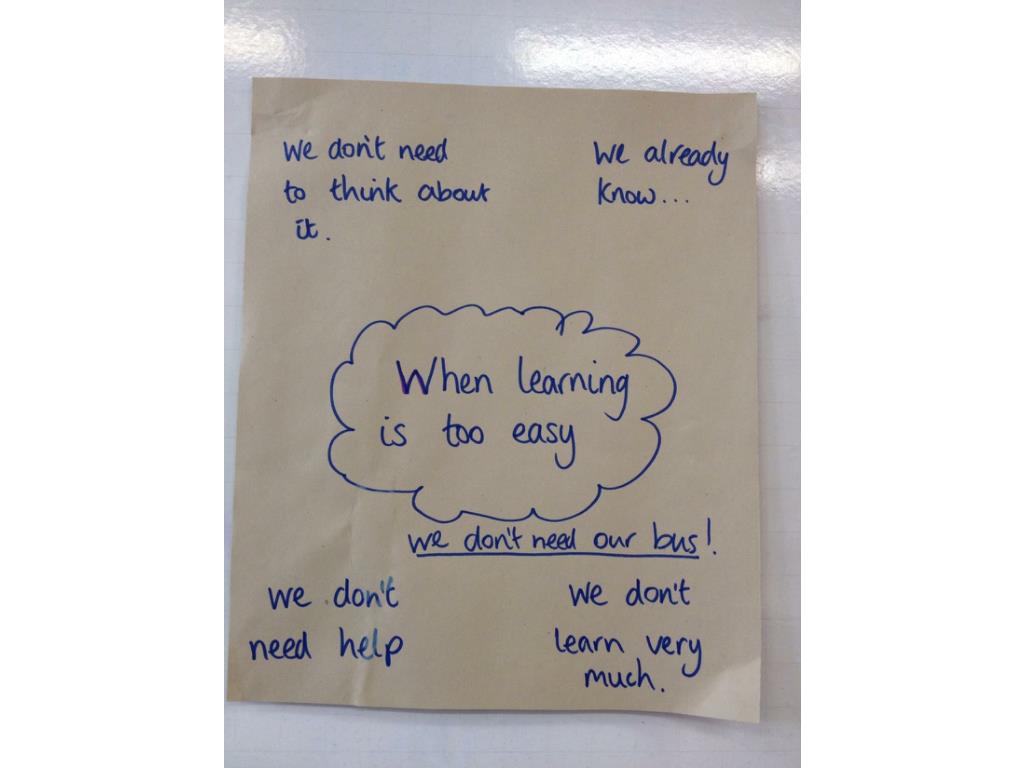 We don't need
to think about
it.
We already
know...
When learning
is too easy
we don't need our bus!
We don't
need help
We don't
learn very
much.